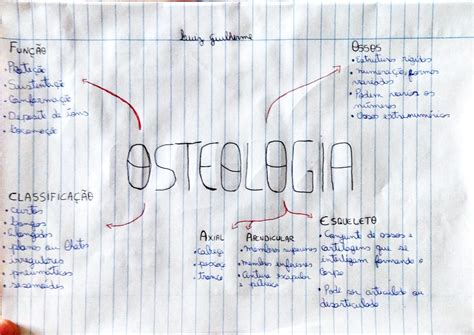 Luiz Guilherme
FUNÇÃO
• Proteção
• Sustentação
• Conformação
• Deposito de íons
• Locomoção
OSSOS
• Estrutura rígidas
• numeração, formas
variadas
• Podem varios os
números
• Ossos extranuméricos
OSTEOLOGIA
CLASSIFICAÇÃO
• curtos
• longos
• Alongados
• planos ou Chatos
• irregulares
• pneumáticos
• sesamóides
AXIAL
• cabeça
• pescoço
• tronco
APENDICULAR
• membros superiores
• membros inferiores
• Cintura escapular e
pélvica
ESQUELETO
• Conjunto de ossos e
cartilagens que se
interligam formando o
Corpo
• Pode ser articulado ou
desarticulado